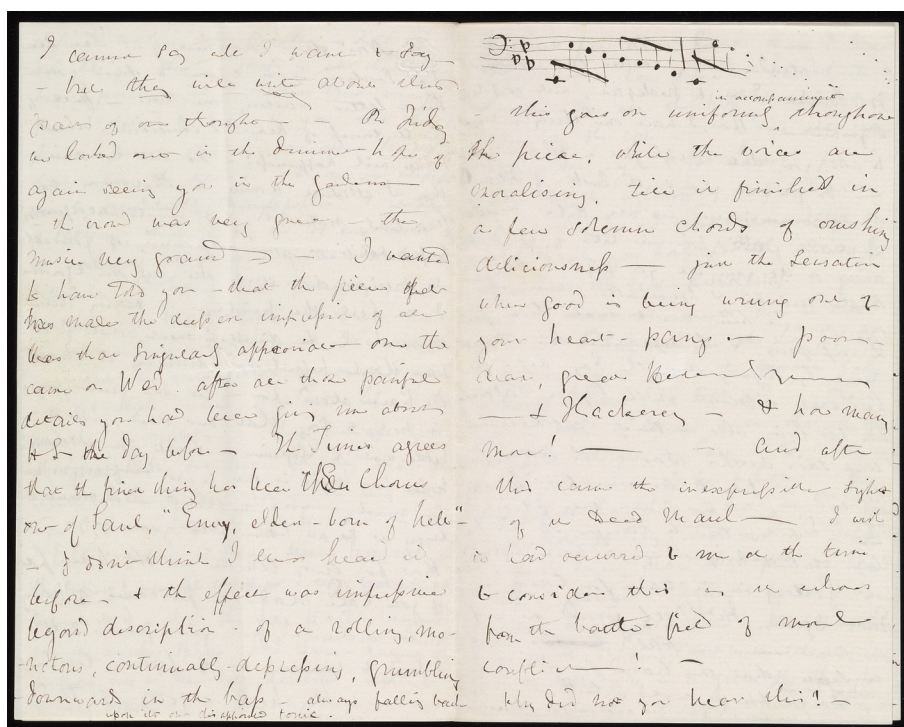 I cannot say all I want to say
- but they will write about
parts of our thoughts - On Friday
we looked out in the dinner hope of
again seeing you in the gardens
- the crowd was very great - the
music very grand - I wanted
to have told you - that the piece that
has made the deepest impression of all
was that singularly appropriate one
came on Wed. after all those painful
details you had been giving me about
the day before - The Times agrees
that the finest thing has been the Chorus
out of Saul, "Envy, eldest-born of hell" -
- I don't think I ever heard it
before - & the effect was impressive
beyond description - of a rolling, mo-
notonous, continually-depressing, grumbling
downwards in the bass - always falling back
upon its own disappointed tonic.
in accompaniment
- this goes on uniformly throughout
the piece, while the voices are
moralising, till it finished in
a few solemn chords of crushing
deliciousness - just the sensation
when good is being wrung out of
your heart-pangs - poor
dear, great
- & Thackeray - & how many
more! - And after
this came the inexpressible
of the Dead March - I wish
it had occurred to me at the time
to consider this as the echoes
from the battle-field of moral
conflict - ! -
Why did not you hear this! -